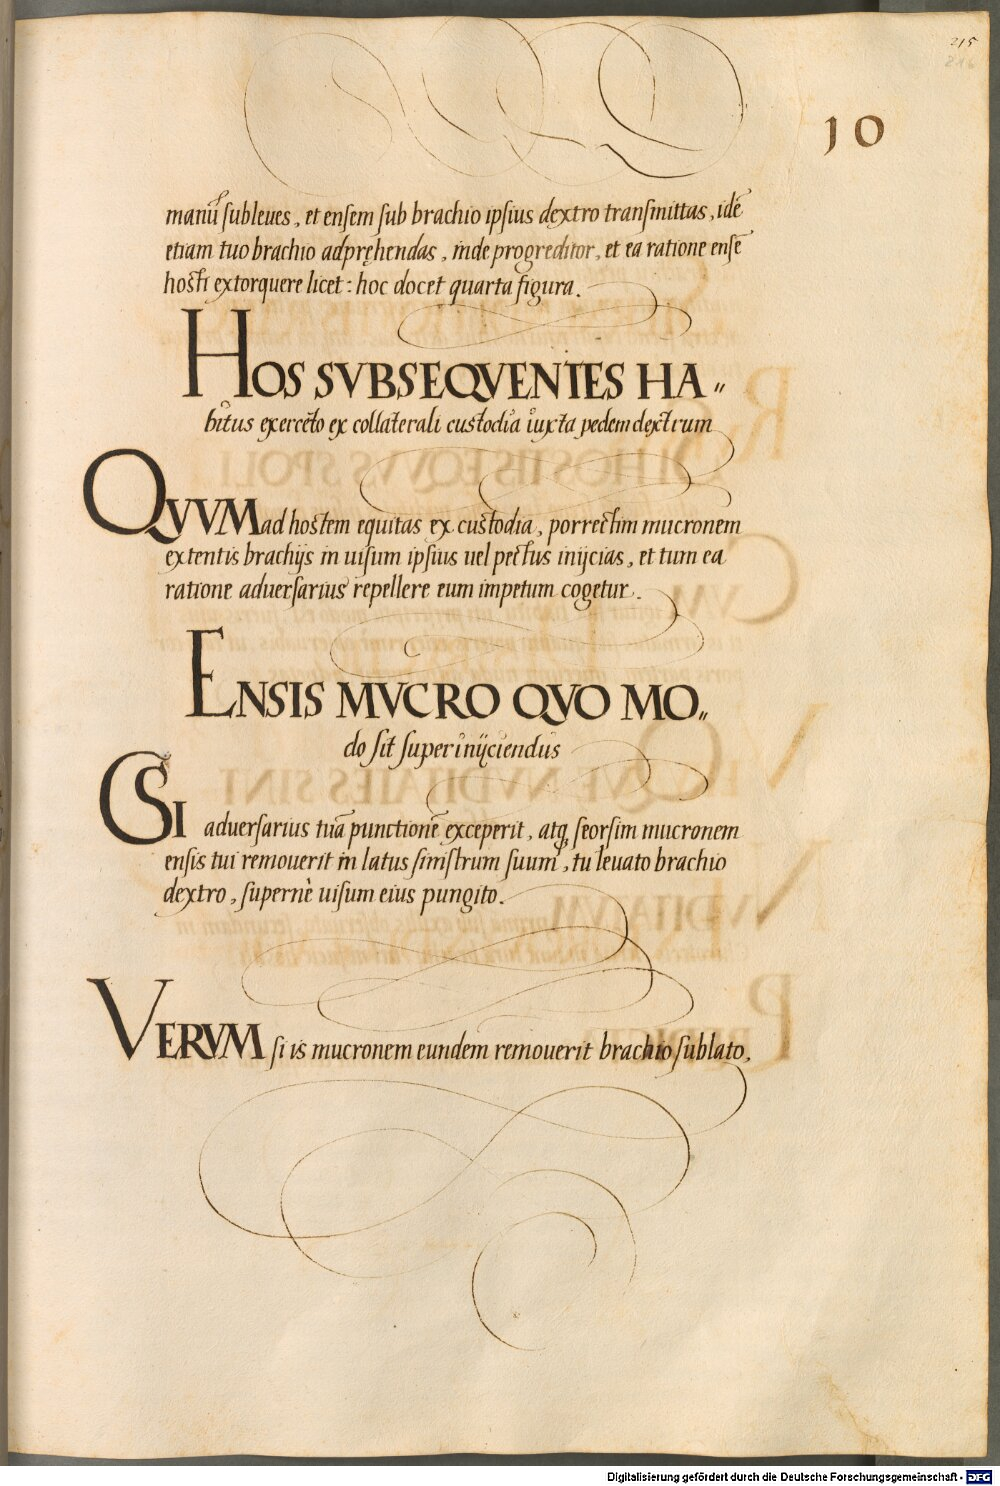 215
216
10
manū subleues, et ensem sub brachio ipsius dextro transmittas, idē
etiam tuo brachio adpręhendas, inde progreditor, et ea ratione ensē
hosti extorquere licet: hoc docet quarta figura.
HOS SVBSEQVENTES HA„
bitus exerceto ex collaterali custodia iuxta pedem dextrum
QVVM ad hostem equitas ex custodia, porrectim mucronem
extentis brachijs in uisum ipsius uel pectus inijcias, et tum ea
ratione aduersarius repellere eum impetum cogetur.
ENSIS MVCRO QVO MO„
do sit superinijciendus
SI aduersarius tuā punctionē exceperit, atq; seorsim mucronem
ensis tui remouerit in latus sinistrum suum, tu leuato brachio
dextro, supernè uisum eius pungito.
VERVM si is mucronem eundem remouerit brachio sublato,
Digitalisierung gefördert durch die Deutsche Forschungsgemeinschaft - DFG